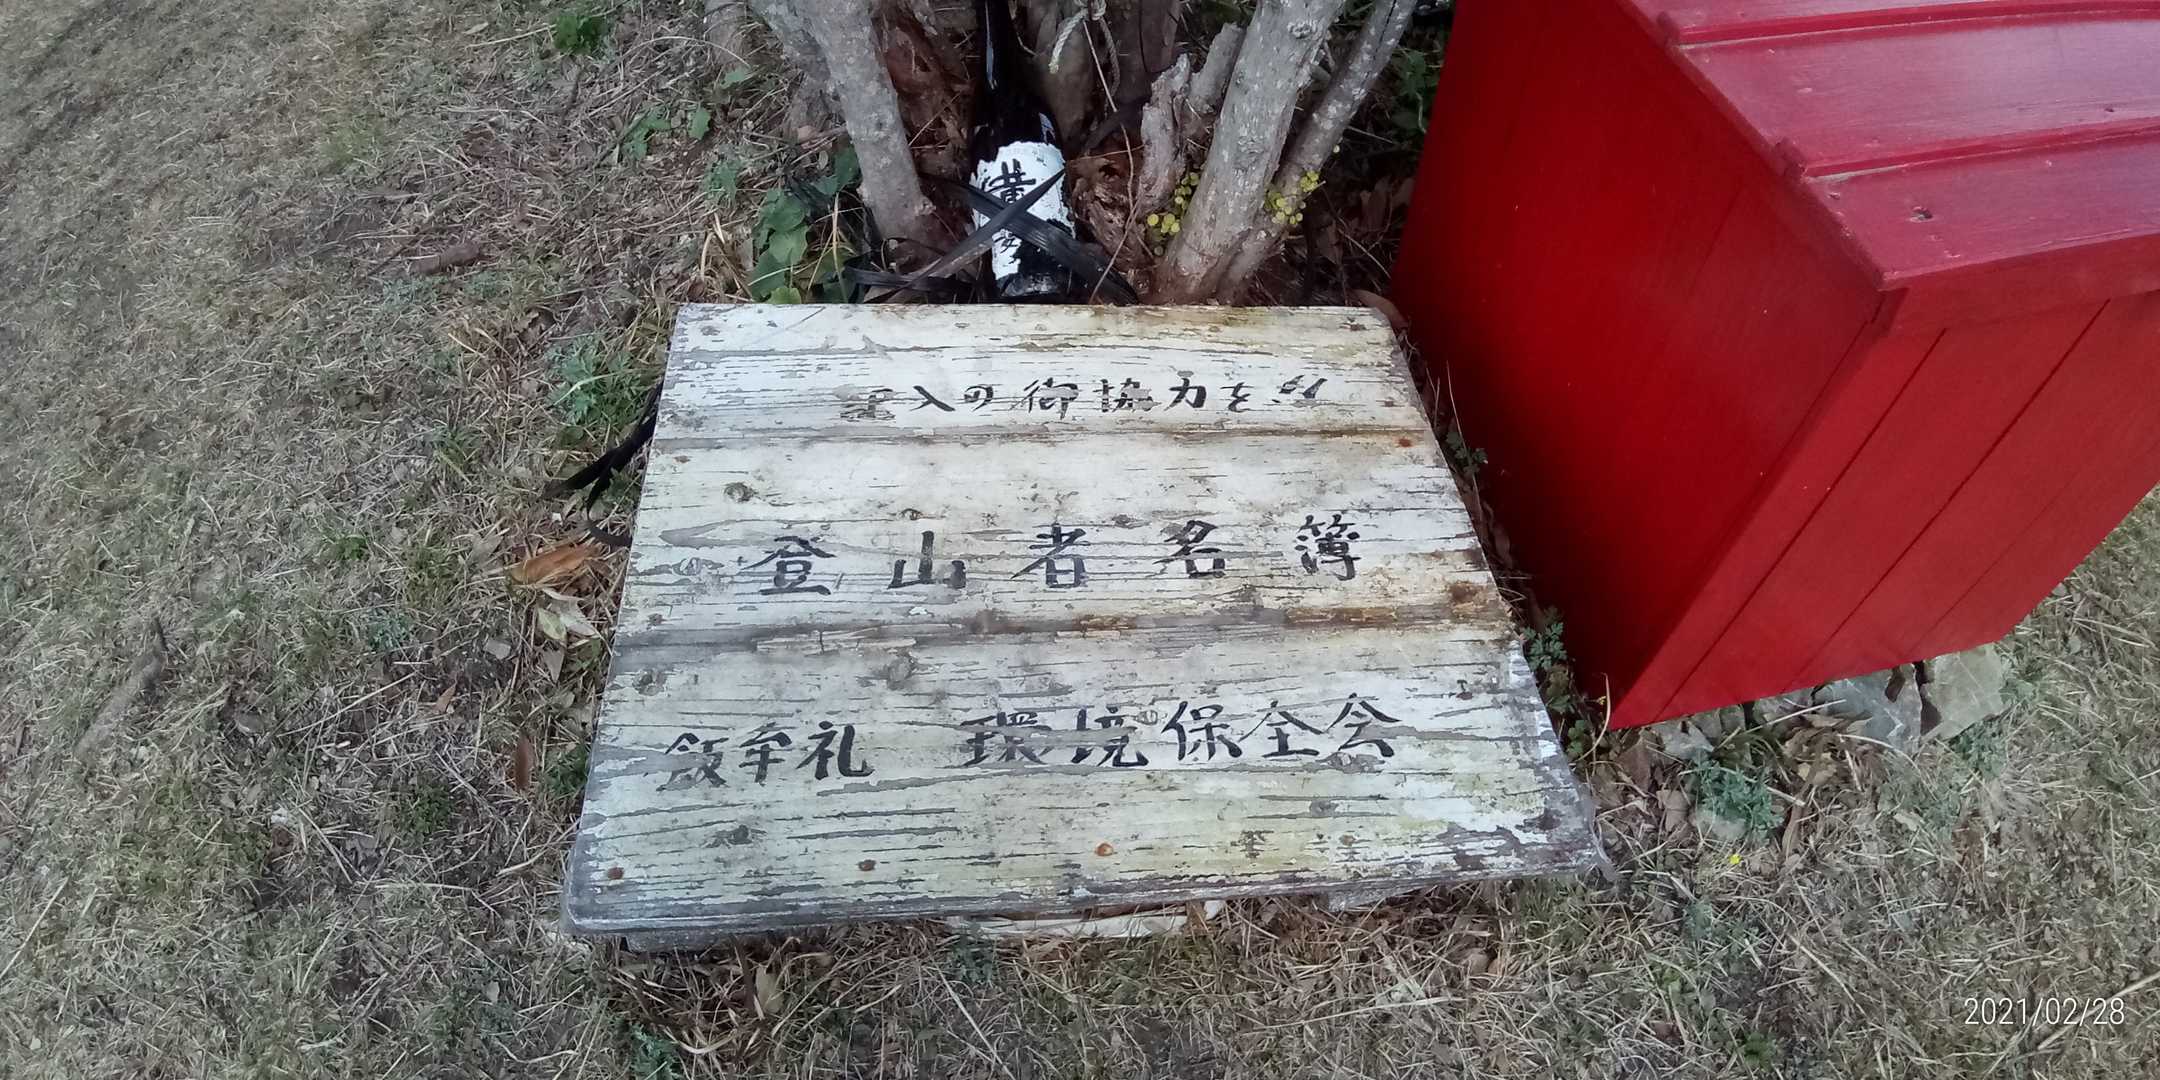 黄
記入の御協力を!!
登山者名簿
飯牟礼 環境保全会
2021/02/28